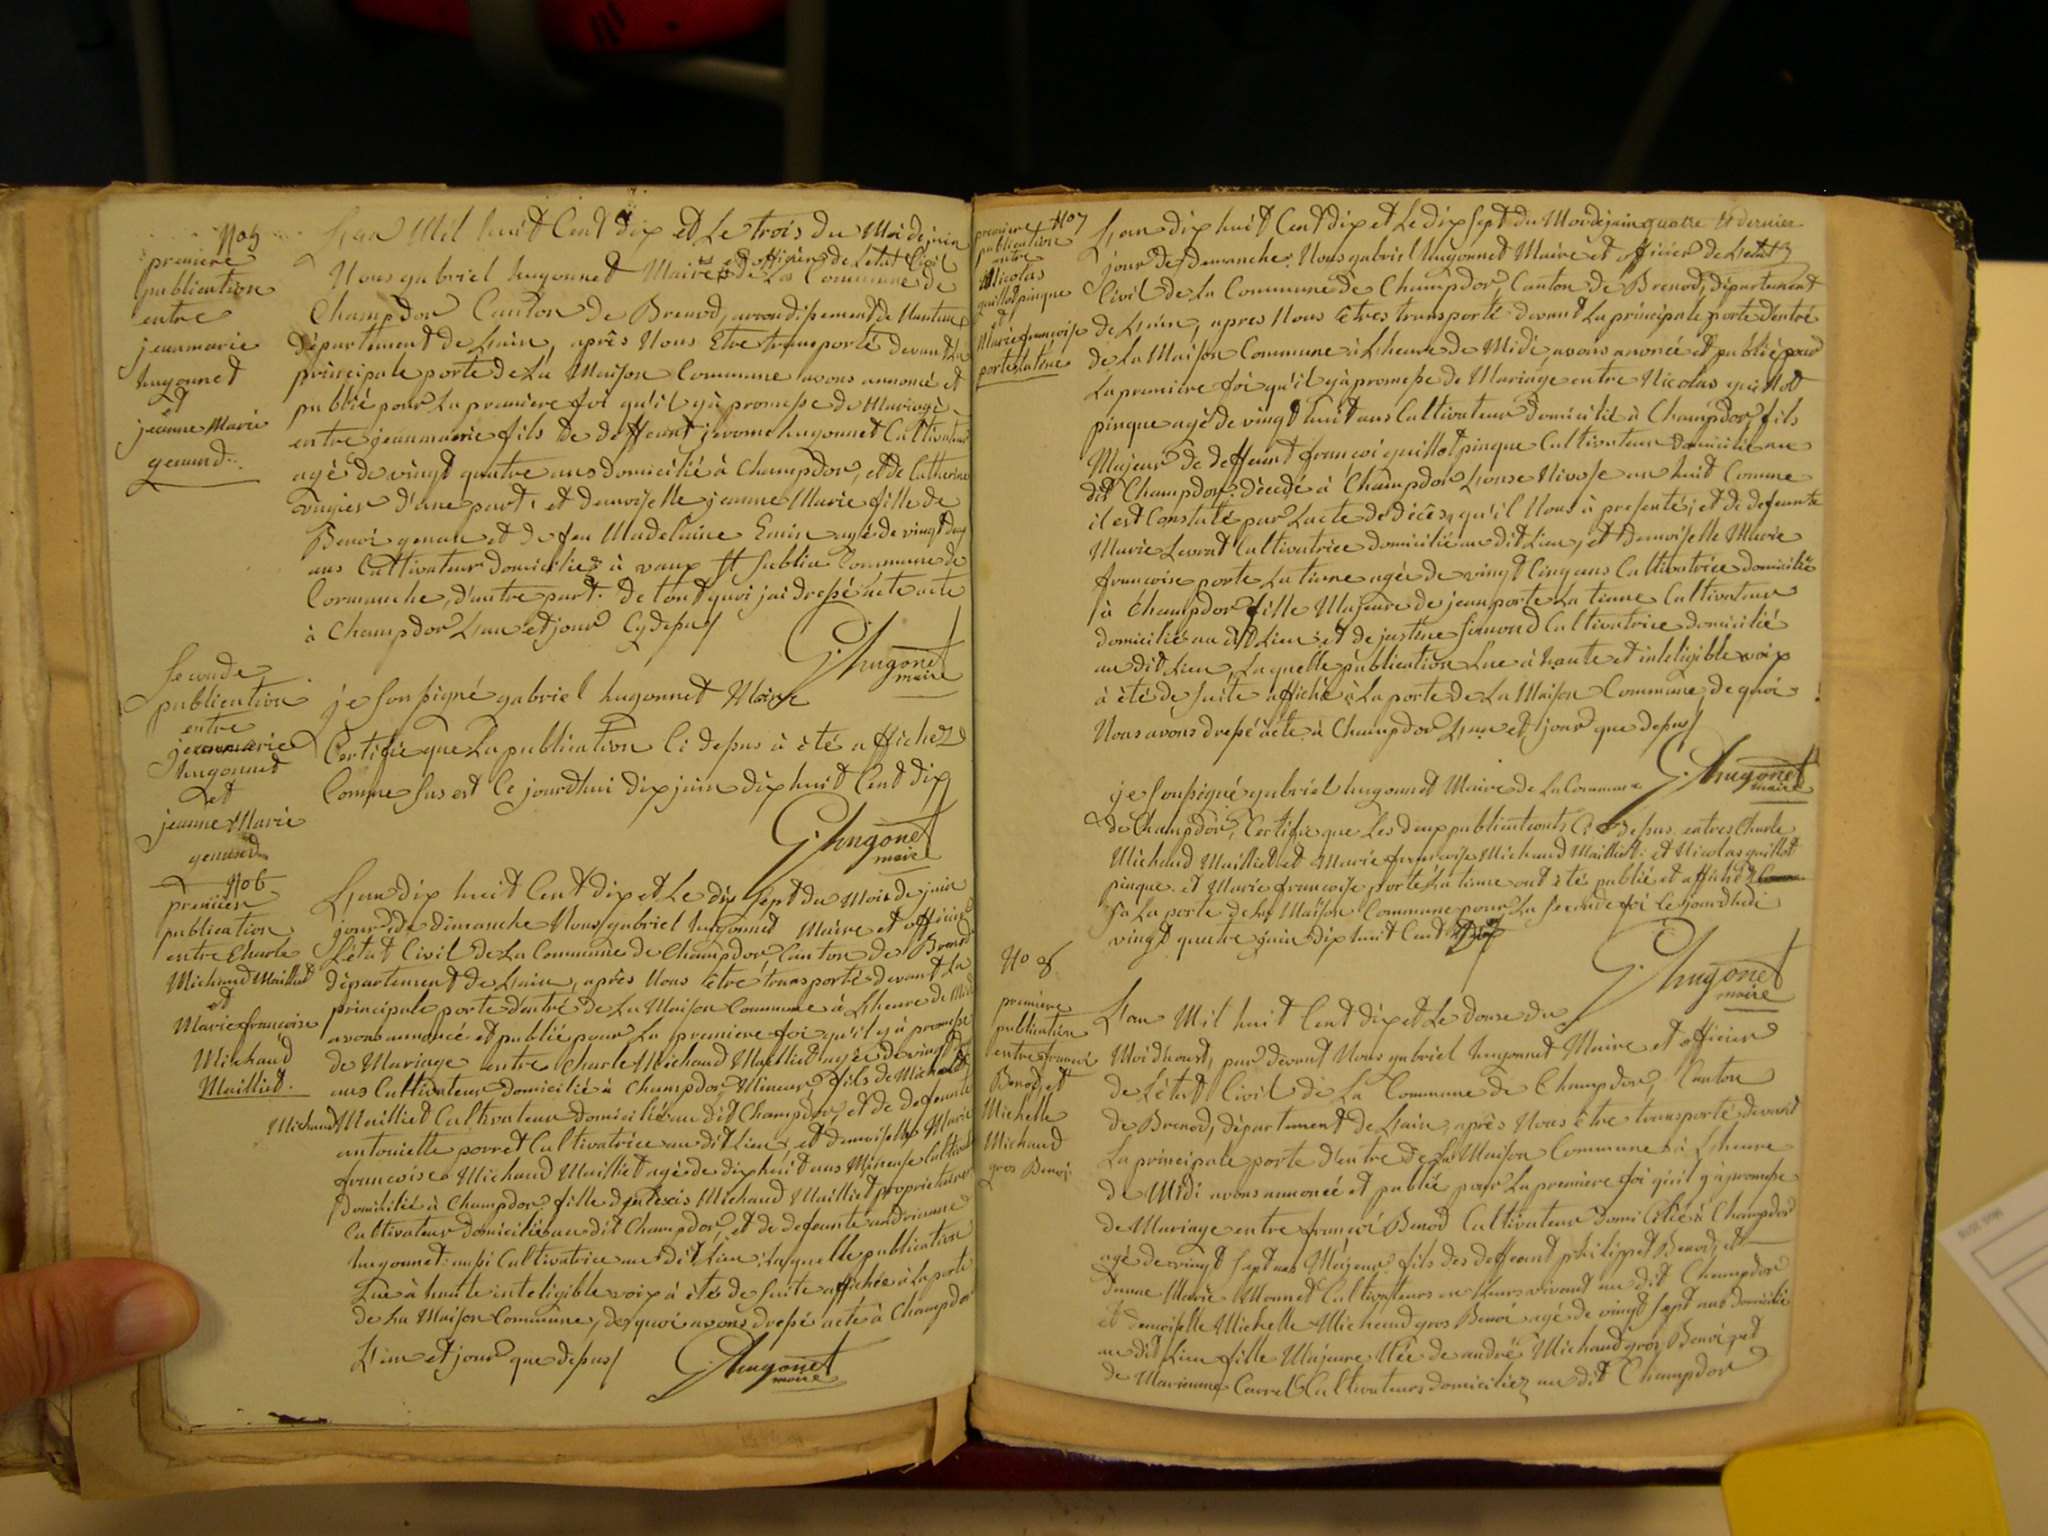 No 5
première
publication
entre
jeanmarie
hugonnet
et
jeanne Marie
genand
L'an Mil huit Cent dix et Le trois du Moi de juin
Nous gabriel hugonnet Maire et officier de L'état Civil de La Commune de
Champdor Canton de Brenod, arrondissement de Nantua
département de L'ain, après Nous Etre transporté devant La
principale porte de La Maison Commune avons annoncé et
publié pour La premiere foi qu'il y à promesse de Mariage
entre jeanmarie fils de deffeunt jerome hugonnet Cultivateur
agé de vingt quatre ans domicilié à Champdor, et de Catherine
d'une part, et demoiselle jeanne Marie fille de
Benoi genan et de feu Madelaine Emin agé de vingt deux
ans Cultivateur domiciliez à vaux St Sublin Commune de
Cormanche, d'autre part. De tout quoi jai dressé acte acte
à Champdor L'an et jour Cy dessus
G. hugonet
maire
Seconde
publication
entre
jeanmarie
hugonnet
et
jeanne Marie
genand
je Soussigné gabriel hugonnet Maire
Certifie que La publication Ci dessus à été affichez
Comme Sus est Ce jourdhui dix juin dix huit Cent dix
G. hugonet
maire
No 6
premiere
publication
entre Charle
Michaud Mailliet
et
Marie francoise
Michaud
Mailliet.
L'an dix huit Cent dix et Le dix Sept du Mois de juin
jour de dimanche Nous gabriel hugonnet Maire et officier
L'état Civil de La Commune de Champdor, Canton de Brenod
département de L'ain, après Nous être transporté devant La
principale porte d'entré de La Maison Commune à L'heure de Midi
avons annoncé et publié pour La premiere foi qu'il y à promesse
de Mariage entre Charle Michaud Mailliet agée de vingt
ans Cultivateur domicilié à Champdor, Mineur fils de
Michaud Mailliet Cultivateur domicilié au dit Champdor, et de defeunte
antoinette porret Cultivatrice au dit Lieu, et demoiselle Marie
francoise Michaud Mailliet agé de dix huit ans Mineure
domicilié à Champdor fille d'alexis Michaud Mailliet proprietaire
Cultivateur domicilié au dit Champdor et de defeunte andrianne
hugonnet aussi Cultivatrice au dit Lieu, Laquelle publication
Lue à haute inteligible voix à été de Suite affichée à La porte
de La Maison Commune, de quoi avons dressé acte à Champdor
L'an et jour que dessus
G. hugonet
maire
No 7
premiere
publication
entre
Nicolas
guillot pinque
et
Marie francoise
porte La tiene
L'an dix huit Cent dix et Le dix Sept du Mois de juin quatre et dernier
jour de demanche. Nous gabriel hugonnet Maire et officier de L'etat
Civil de La Commune de Champdor, Canton de Brenod, département
de L'ain, apres Nous êtres transporté devant La principale porte d'entré
de La Maison Commune à L'heure de Midi, avons anoncé et publié pour
La premiere foi qu'il y à promesse de Mariage entre Nicolas guillot
pinque agé de vingt huit ans Cultivateur domicilié à Champdor, fils
Majeur de deffeunt françoi guillot pinque Cultivateur domicilié au
dit Champdor, décedé à Champdor Nivose an huit Comme
il est Constaté par L'acte de décès, qu'il Nous à presenté, et de defeunte
Marie Levrat Cultivatrice domicilié au dit Lieu, et demoiselle Marie
francoise porte La tiene agée de vingt Cinq ans Cultivatrice domicilié
à Champdor fille Majeure de jean porte La tiene Cultivateur
domicilié au dit Lieu, et de justine Simond Cultivatrice domicilié
au dit Lieu, Laquelle publication Lue à haute et inteligible voix
à été de Suite affiché à La porte de La Maison Commune, de quoi
Nous avons dressé acte à Champdor L'an et jour que dessus
G. hugonet
maire
je Soussigné gabriel hugonnet Maire de La Commune
de Champdor, Certifie que Les deux publications Ci dessus entres Charle
Michaud Mailliet et Marie francoise Michaud Mailliet, et Nicolas guillot
pinque et Marie francoise porte La tiene ont été publié et affichéz
à La porte de La Maison Commune pour La Seconde foi Le jourdhui
vingt quatre juin dix huit Cent dix
G. hugonet
maire
No 8
première
publication
entre francoi
Benod, et
Michelle
Michaud
gros Benoi
L'an Mil huit Cent dix et Le douse du
Moi d'houst, par devant Nous gabriel hugonnet Maire et officier
de L'état Civil de La Commune de Champdor, Canton
de Brenod, département de L'ain, après Nous être transporté devant
La principale porte d'entre de La Maison Commune à L'heure
de Midi avons annoncé et publié pour La premiere foi qu'il y à promesse
de Mariage entre françoi Benod Cultivateur domicilié à Champdor
agé de vingt Sept ans Majeur fils des deffeunt philippet Benod, et
d'anne Marie Monnet Cultivatteurs en Leurs vivant au dit Champdor
et demoiselle Michelle Michaud gros Benoi agé de vingt Sept ans domicilié
au dit Lieu fille Majeure Née de andré Michaud gros Benoi, et
de Marianne Carrel Cultivateurs domiciliez au dit Champdor